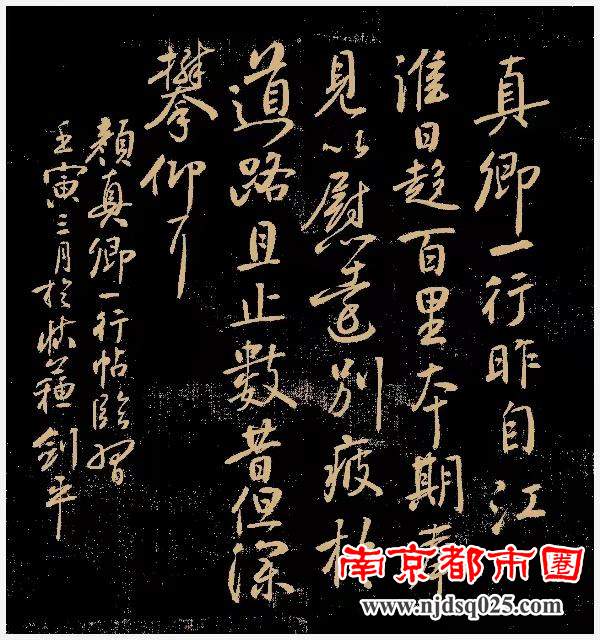 真卿一行昨自江
淮日趍百里本期奉
見以慰遠別疲於
道路且止數昔但深
攀仰
顏真卿一行帖臨習
壬寅三月於 劍平
南京都市圈
www.njdsq025.com